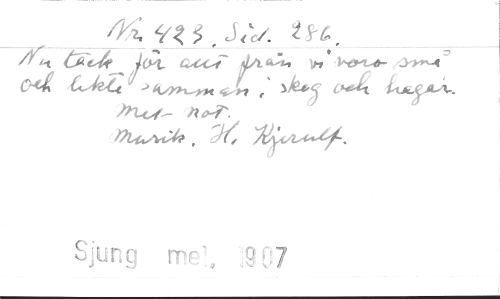 Nr 423. Sid. 286.
Nu tack för allt från vi voro små
och lekte samman i skog och hagar.
Med not.
Musik. H. Kjerulf.
Sjung mel. 1907